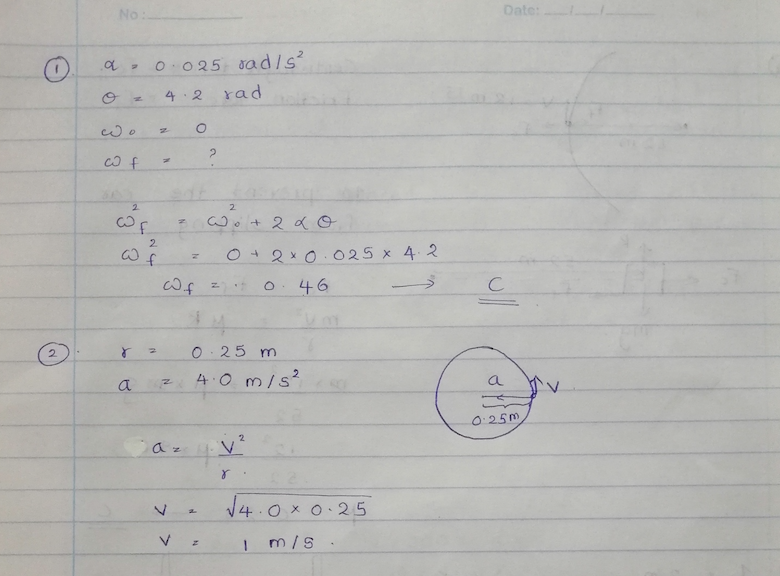 No: Date: / /
① α = 0.025 rad/s²
θ = 4.2 rad
ω₀ = 0
ωf = ?
ωf² = ω₀² + 2 α θ
ωf² = 0 + 2 × 0.025 × 4.2
ωf = 0.46 → C
② r = 0.25 m
a = 4.0 m/s²
a V
0.25m
a = V²/r
V = √4.0 × 0.25
V = 1 m/s.